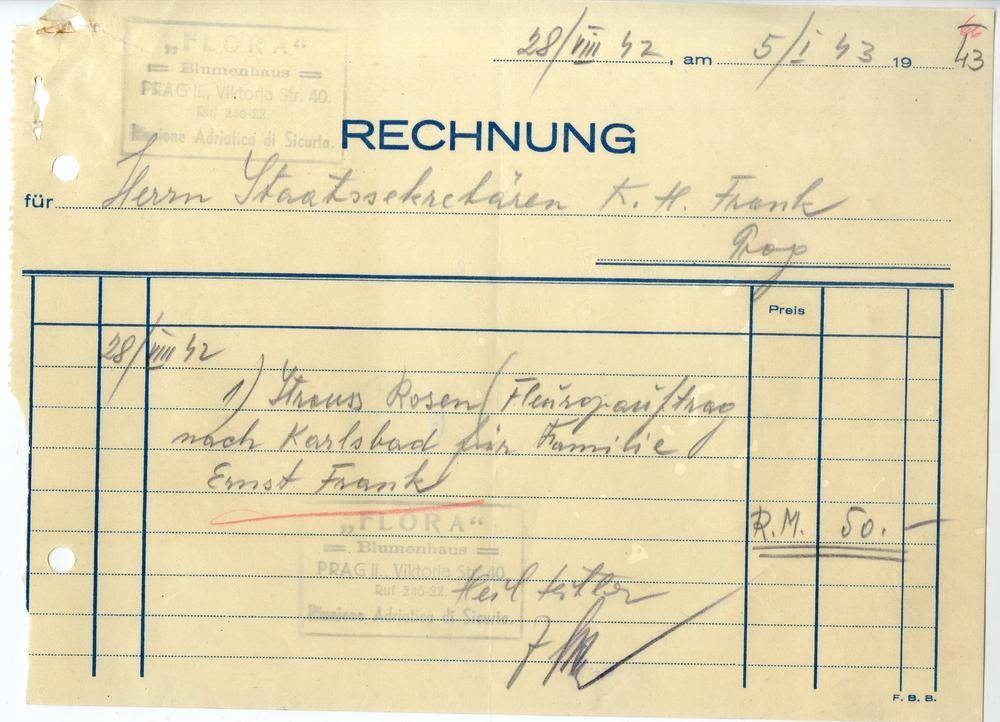 „FLORA“
Blumenhaus
PRAG II., Viktoria Str. 40.
Ruf 246-22.
Riunione Adriatica di Sicurta.
28/VIII 42, am 5/I 43 19 43
RECHNUNG
für Herrn Staatssekretären K. H. Frank
Prag
Preis
28/VIII 42
1) Strauss Rosen/Fleuropauftrag
nach Karlsbad für Familie
Ernst Frank
R.M. 50.—
„FLORA“
Blumenhaus
PRAG II., Viktoria Str. 40.
Ruf 246-22.
Riunione Adriatica di Sicurta.
Heil Hitler
F. B. B.